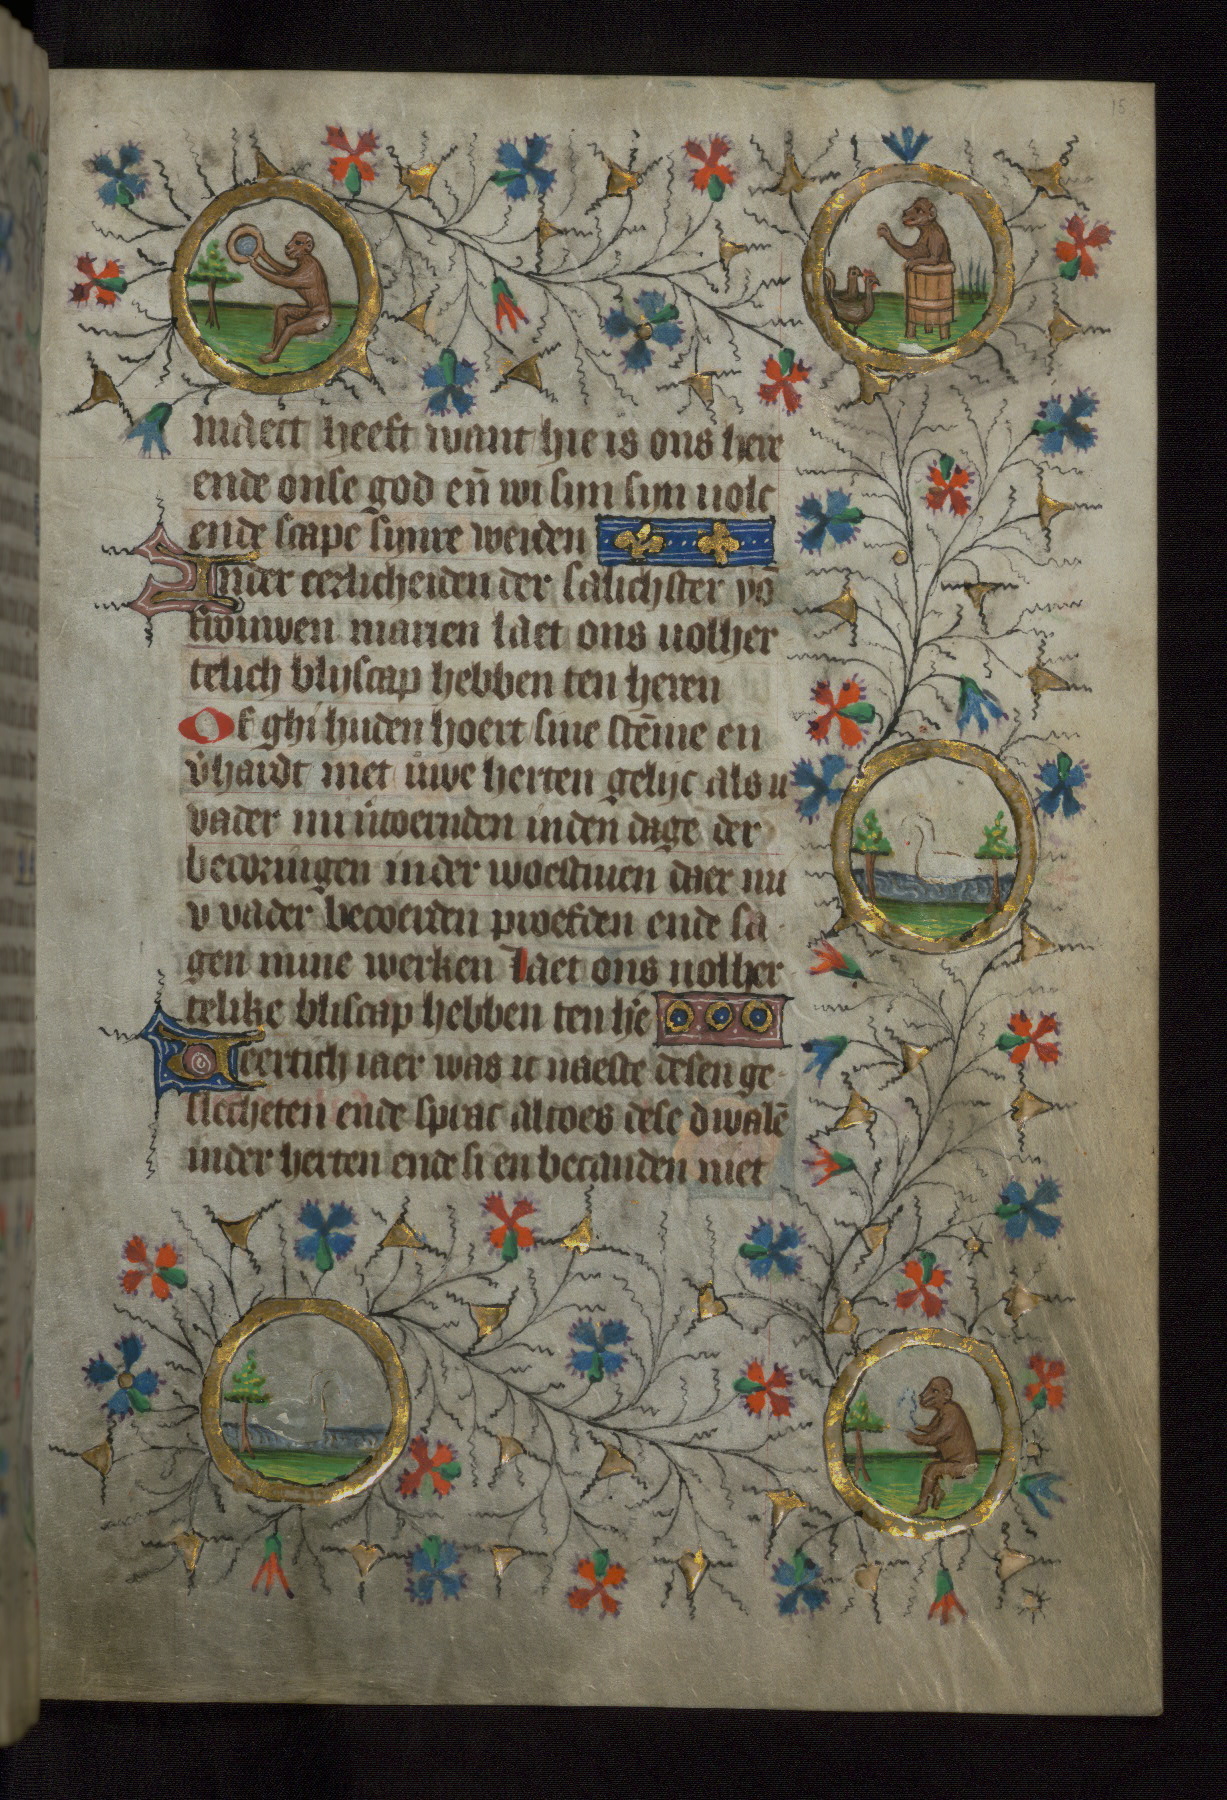 15
maect heeft want hie is ons here
ende onse god en̄ wi sijn sijn uolc
ende scape sijnre weiden
Inder eerlicheiden der salichster vō
frouwen marien laet ons uolher
telich blijscap hebben ten heren
Of ghi huden hoert sine stēme en
v̄hardt niet uwe herten gelijc als u
vader mi uitoernden inden dage der
becoringen inder woestinen daer mi
v vader becoerden proefden ende sa
gen mine werken Laet ons uolher
telike bliscap hebben ten h̄e
Veertich iaer was ic naeste desen ge
slecheten ende sprac altoes dese dwalē
inder herten ende si en becanden niet